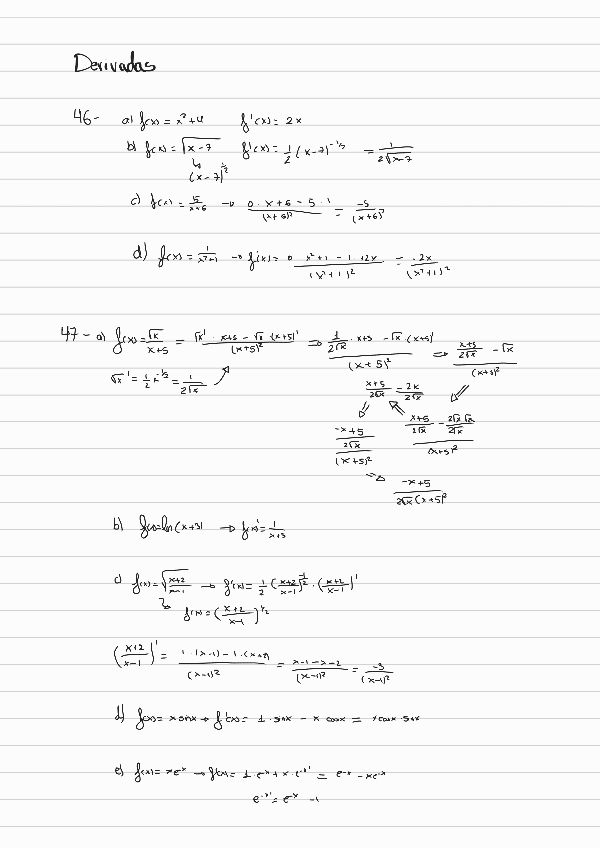 Derivadas
46- a) f(x) = x² + 4 f'(x) = 2x
b) f(x) = √(x-7) f'(x) = 1/2 (x-7)^(-1/2) = 1/(2√(x-7))
↳ (x-7)^(1/2)
c) f(x) = 5/(x+6) → (0 · x+6 - 5 · 1)/(x+6)² = -5/(x+6)²
d) f(x) = 1/(x²+1) → f'(x) = (0 x²+1 - 1 · 2x)/(x²+1)² = -2x/(x²+1)²
47- a) f(x) = √x/(x+5) = (√x' · x+5 - √x · (x+5)')/(x+5)² ⇒ (1/(2√x) · x+5 - √x · (x+5)')/(x+5)² ⇒ ((x+5)/(2√x) - √x)/(x+5)²
√x' = 1/2 x^(-1/2) = 1/(2√x)
(x+5)/(2√x) - 2x/(2√x)
((x+5)/(2√x) - (2√x√x)/(2√x))/(x+5)²
((-x+5)/(2√x))/(x+5)²
⇒ (-x+5)/(2√x (x+5)²)
b) f(x) = ln(x+3) → f(x)' = 1/(x+3)
c) f(x) = √((x+2)/(x-1)) → f'(x) = 1/2 ((x+2)/(x-1))^(-1/2) · ((x+2)/(x-1))'
↳ f(x) = ((x+2)/(x-1))^(1/2)
((x+2)/(x-1))' = (1 · (x-1) - 1 · (x+2))/(x-1)² = (x-1-x-2)/(x-1)² = -3/(x-1)²
d) f(x) = x sinx → f'(x) = 1 · sinx - x cosx = x cosx · sinx
e) f(x) = xe^-x → f'(x) = 1 · e^-x + x · e^-x' = e^-x - xe^-x
e^-x' = e^-x · -1